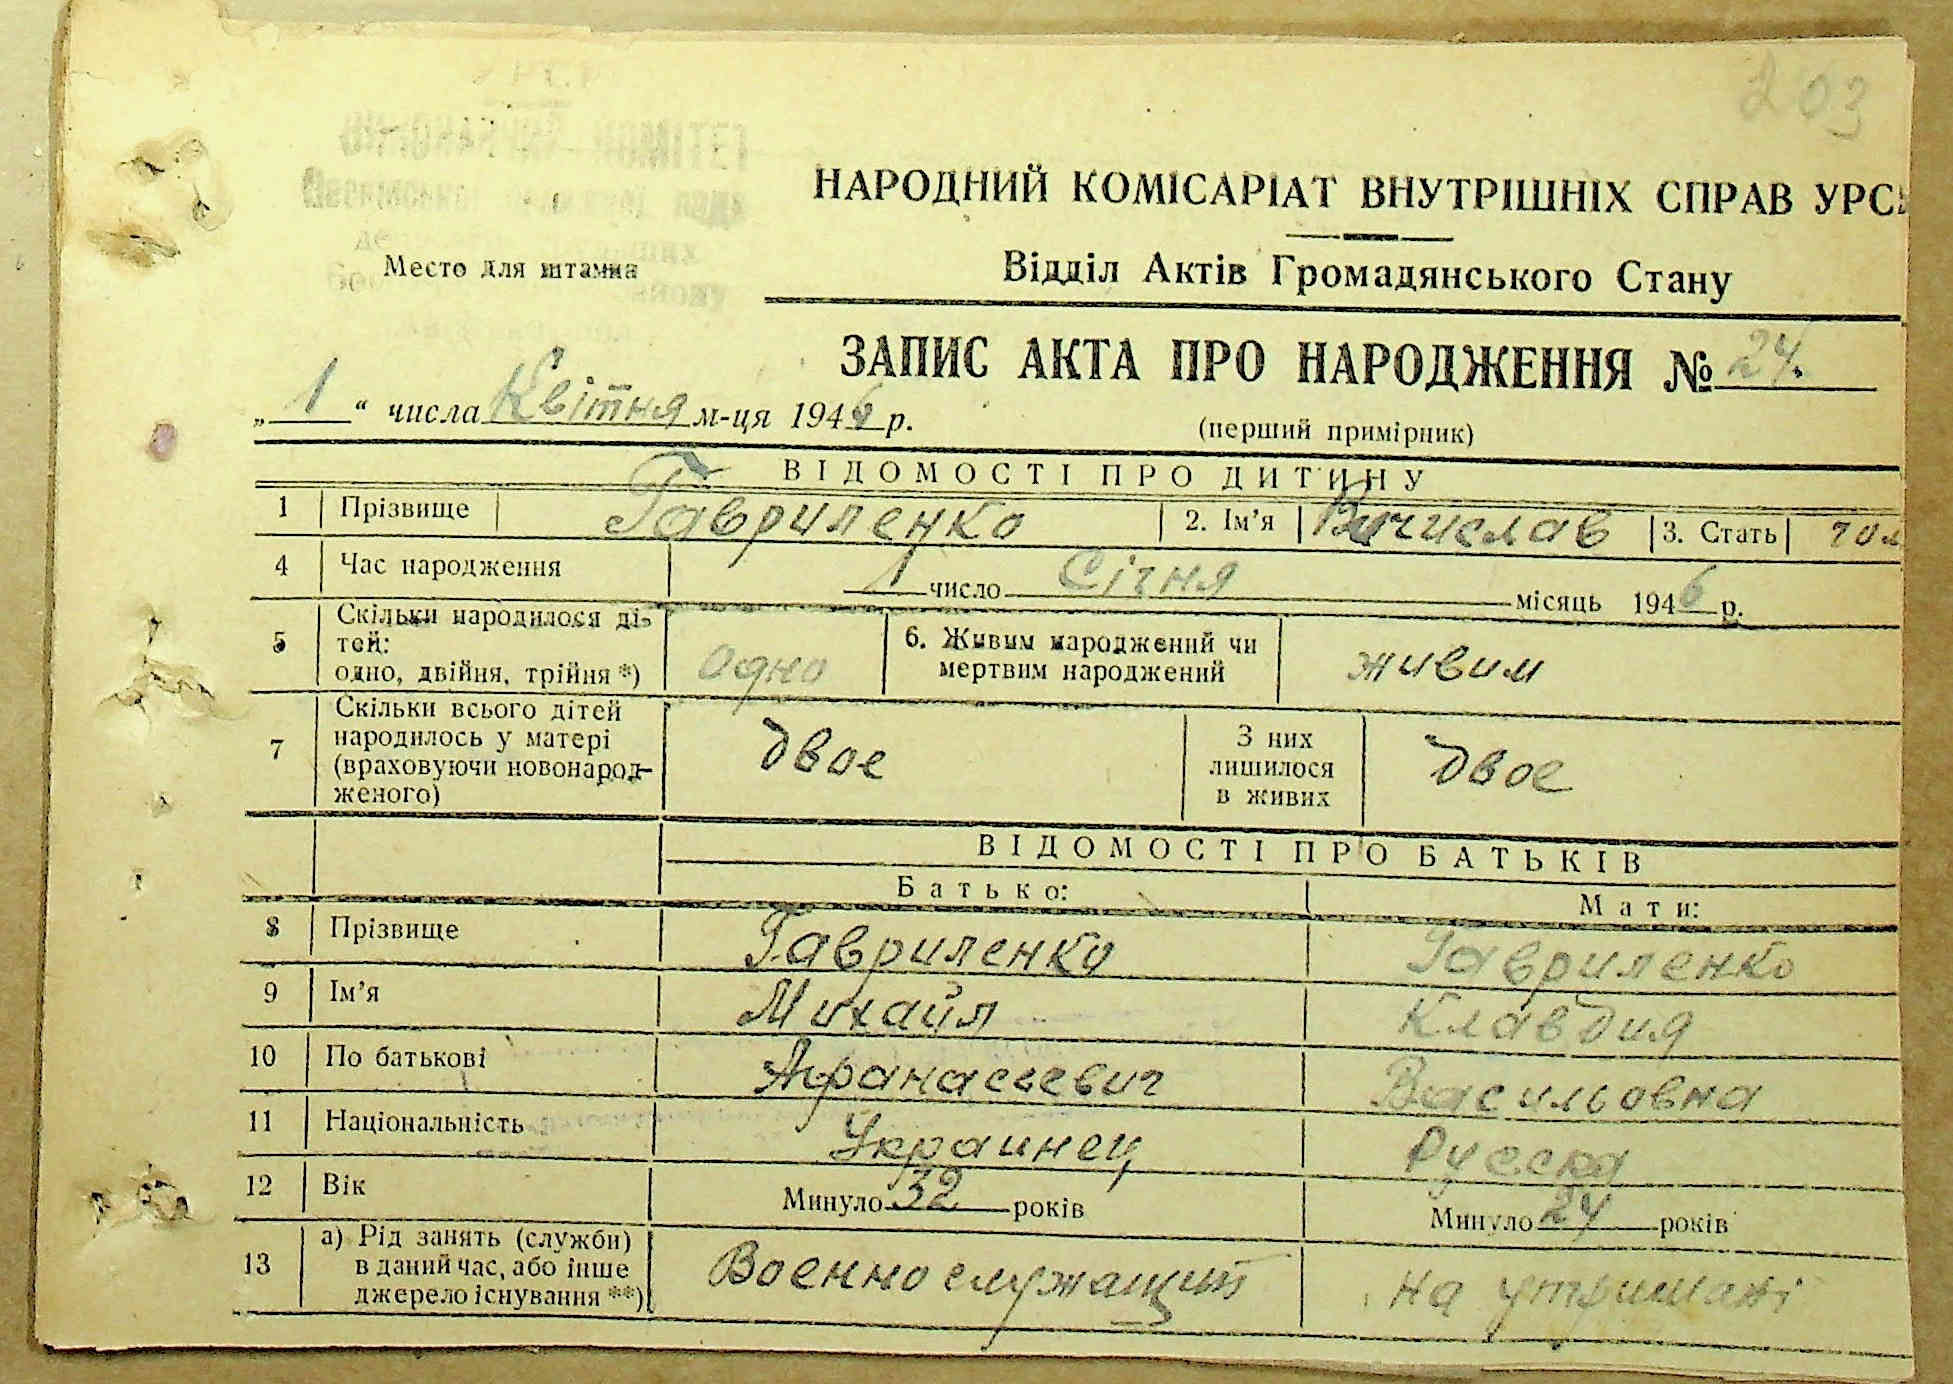 203
НАРОДНИЙ КОМІСАРІАТ ВНУТРІШНІХ СПРАВ УРСР
Відділ Актів Громадянського Стану
Место для штампа
ЗАПИС АКТА ПРО НАРОДЖЕННЯ № 24.
„ 1 “ числа Квітня м-ця 1946 р.
(перший примірник)
ВІДОМОСТІ ПРО ДИТИНУ
1 Прізвище Гавриленко 2. Ім'я Вичислав 3. Стать чол
4 Час народження 1 число Січня місяць 1946 р.
5 Скільки народилося ді-
тей:
одно, двійня, трійня *) одно 6. Живим народжений чи
мертвим народжений живим
7 Скільки всього дітей
народилось у матері
(враховуючи новонарод-
женого) двое З них
лишилося
в живих двое
ВІДОМОСТІ ПРО БАТЬКІВ
Батько: Мати:
8 Прізвище Гавриленко Гавриленко
9 Ім'я Михаил Клавдия
10 По батькові Афанасьевич Васильовна
11 Національність Украинец Русска
12 Вік Минуло 32 років Минуло 24 років
13 а) Рід занять (служби)
в даний час, або інше
джерело існування **) Военнослужащий на утримані